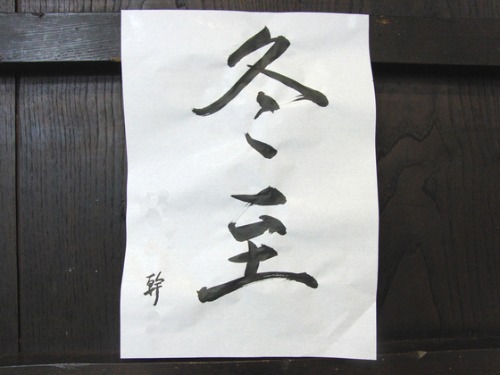 冬至
幹